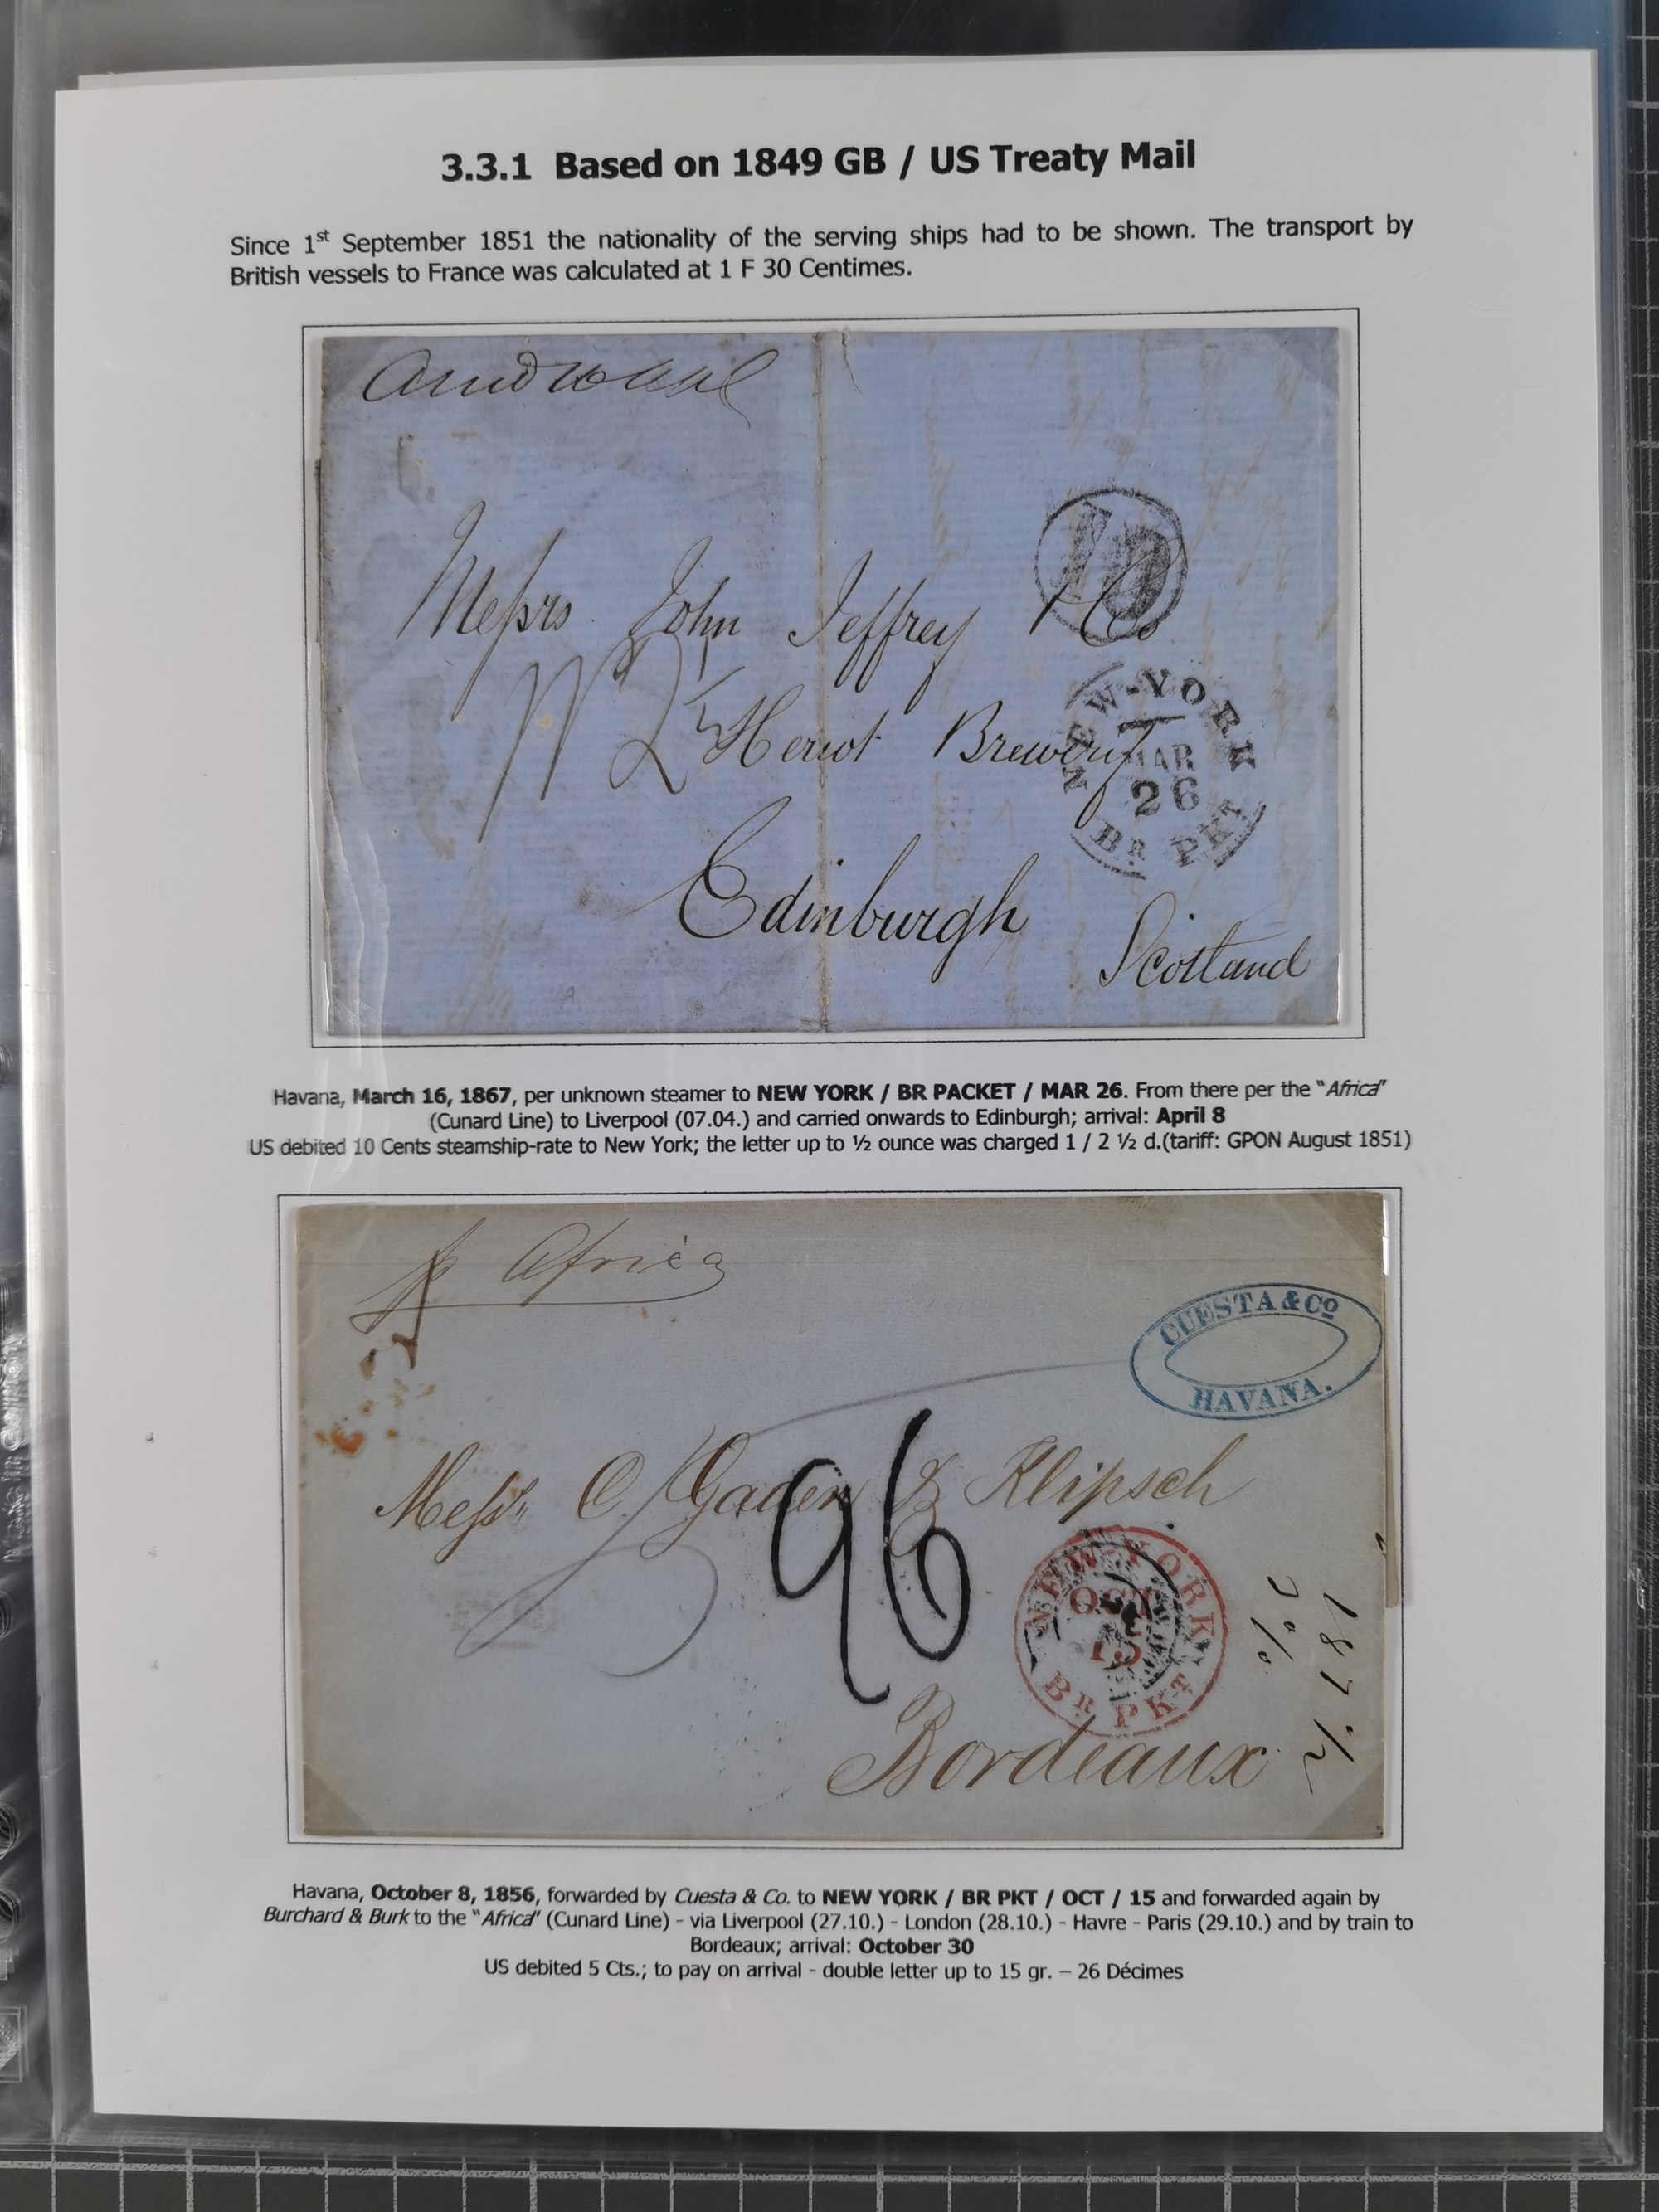 3.3.1 Based on 1849 GB / US Treaty Mail
Since 1st September 1851 the nationality of the serving ships had to be shown. The transport by
British vessels to France was calculated at 1 F 30 Centimes.
10
Messrs John Jeffrey & Co
1/2½
Heriot Brewery
NEW-YORK
MAR
26
BR PKT
Edinburgh
Scotland
Havana, March 16, 1867, per unknown steamer to NEW YORK / BR PACKET / MAR 26. From there per the "Africa"
(Cunard Line) to Liverpool (07.04.) and carried onwards to Edinburgh; arrival: April 8
US debited 10 Cents steamship-rate to New York; the letter up to ½ ounce was charged 1 / 2 ½ d.(tariff: GPON August 1851)
p Africa
CUESTA & Co
HAVANA.
Messrs C. Gaden & Klipsch
26
NEW-YORK
OCT
15
BR PKT
Bordeaux
Havana, October 8, 1856, forwarded by Cuesta & Co. to NEW YORK / BR PKT / OCT / 15 and forwarded again by
Burchard & Burk to the "Africa" (Cunard Line) - via Liverpool (27.10.) - London (28.10.) - Havre - Paris (29.10.) and by train to
Bordeaux; arrival: October 30
US debited 5 Cts.; to pay on arrival - double letter up to 15 gr. – 26 Décimes